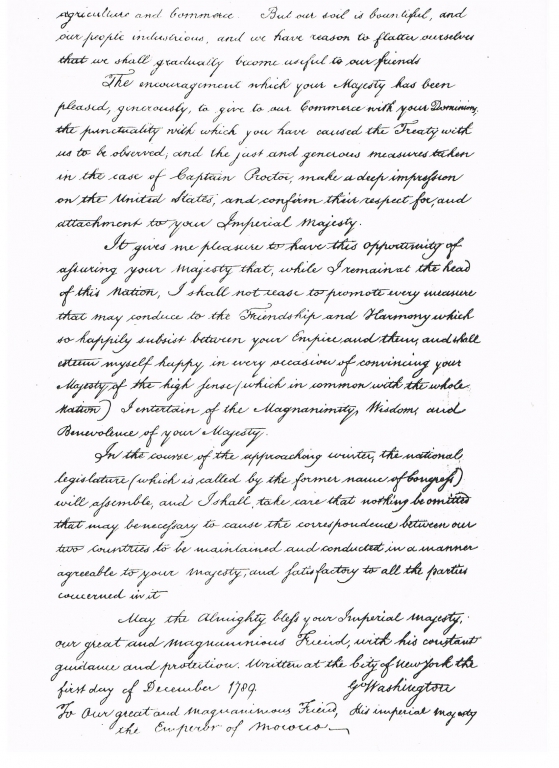 agriculture and Commerce. But our soil is bountiful, and
our people industrious, and we have reason to flatter ourselves
that we shall gradually become useful to our friends
The encouragement which your Majesty has been
pleased, generously, to give to our Commerce with your Dominions,
the punctuality with which you have caused the Treaty with
us to be observed, and the just and generous measures taken
in the case of Captain Proctor, make a deep impression
on the United States, and confirm their respect for, and
attachment to your Imperial Majesty.
It gives me pleasure to have this opportunity of
assuring your Majesty that, while I remain at the head
of this Nation, I shall not cease to promote every measure
that may conduce to the Friendship and Harmony which
so happily subsist between your Empire and them, and shall
esteem myself happy in every occasion of convincing your
Majesty of the high sense (which in common with the whole
Nation) I entertain of the Magnanimity, Wisdom, and
Benevolence of your Majesty.
In the course of the approaching winter, the national
legislature (which is called by the former name of Congress)
will assemble, and I shall, take care that nothing be omitted
that may be necessary to cause the correspondence between our
two countries to be maintained and conducted in a manner
agreeable to your Majesty, and satisfactory to all the parties
concerned in it
May the Almighty bless your Imperial Majesty,
our great and magnanimous Friend, with his constant
guidance and protection. Written at the City of New York the
first day of December 1789. Go Washington
To Our great and magnanimous Friend, His imperial majesty
the Emperor of Morocco